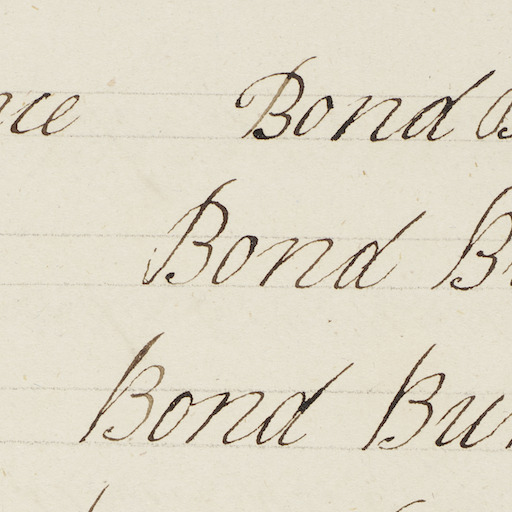 nce Bond B
Bond B
Bond Bu